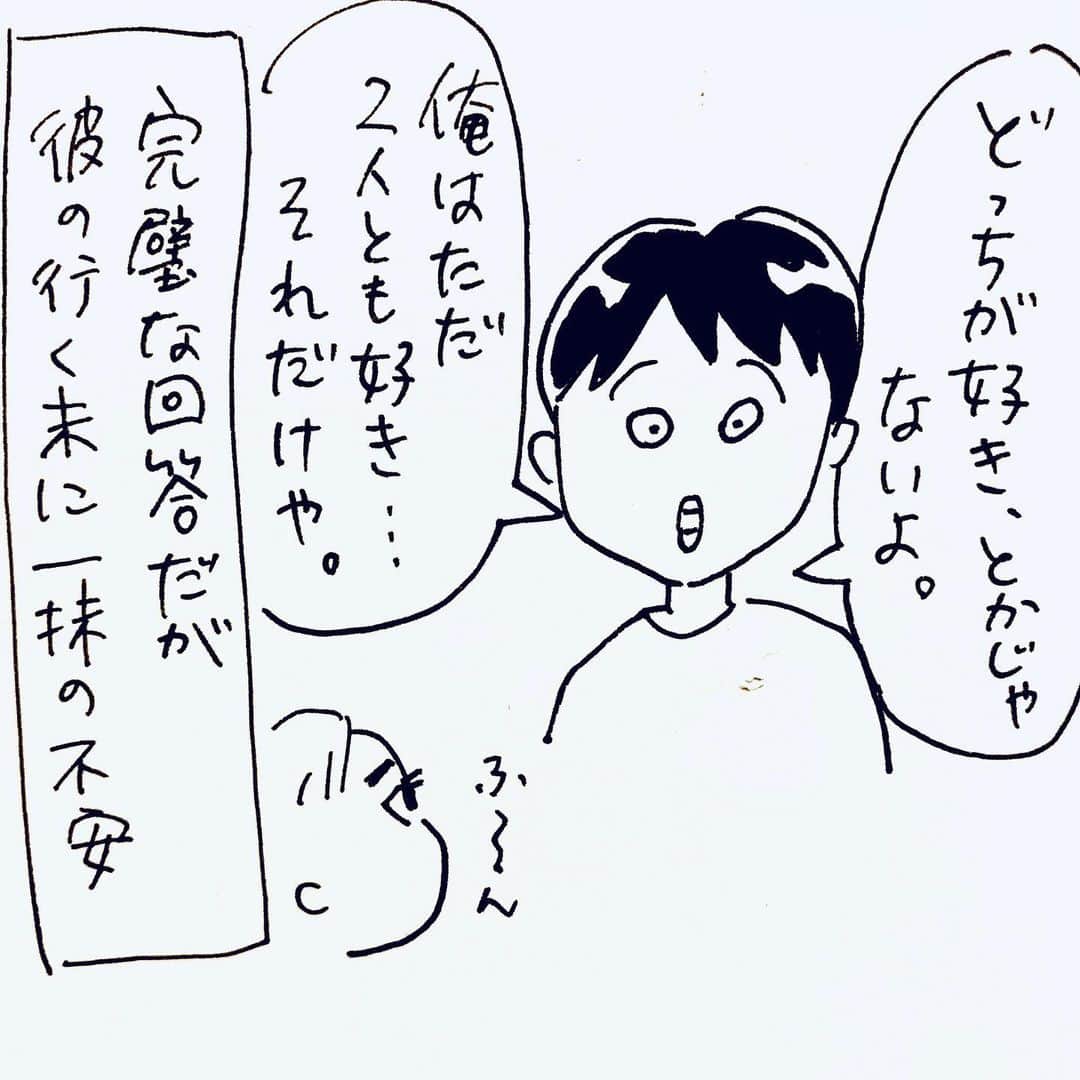 どっちが好き、とかじゃ
ないよ。
俺はただ
2人とも好き…
それだけや。
ふ〜ん
完璧な回答だが
彼の行く末に一抹の不安